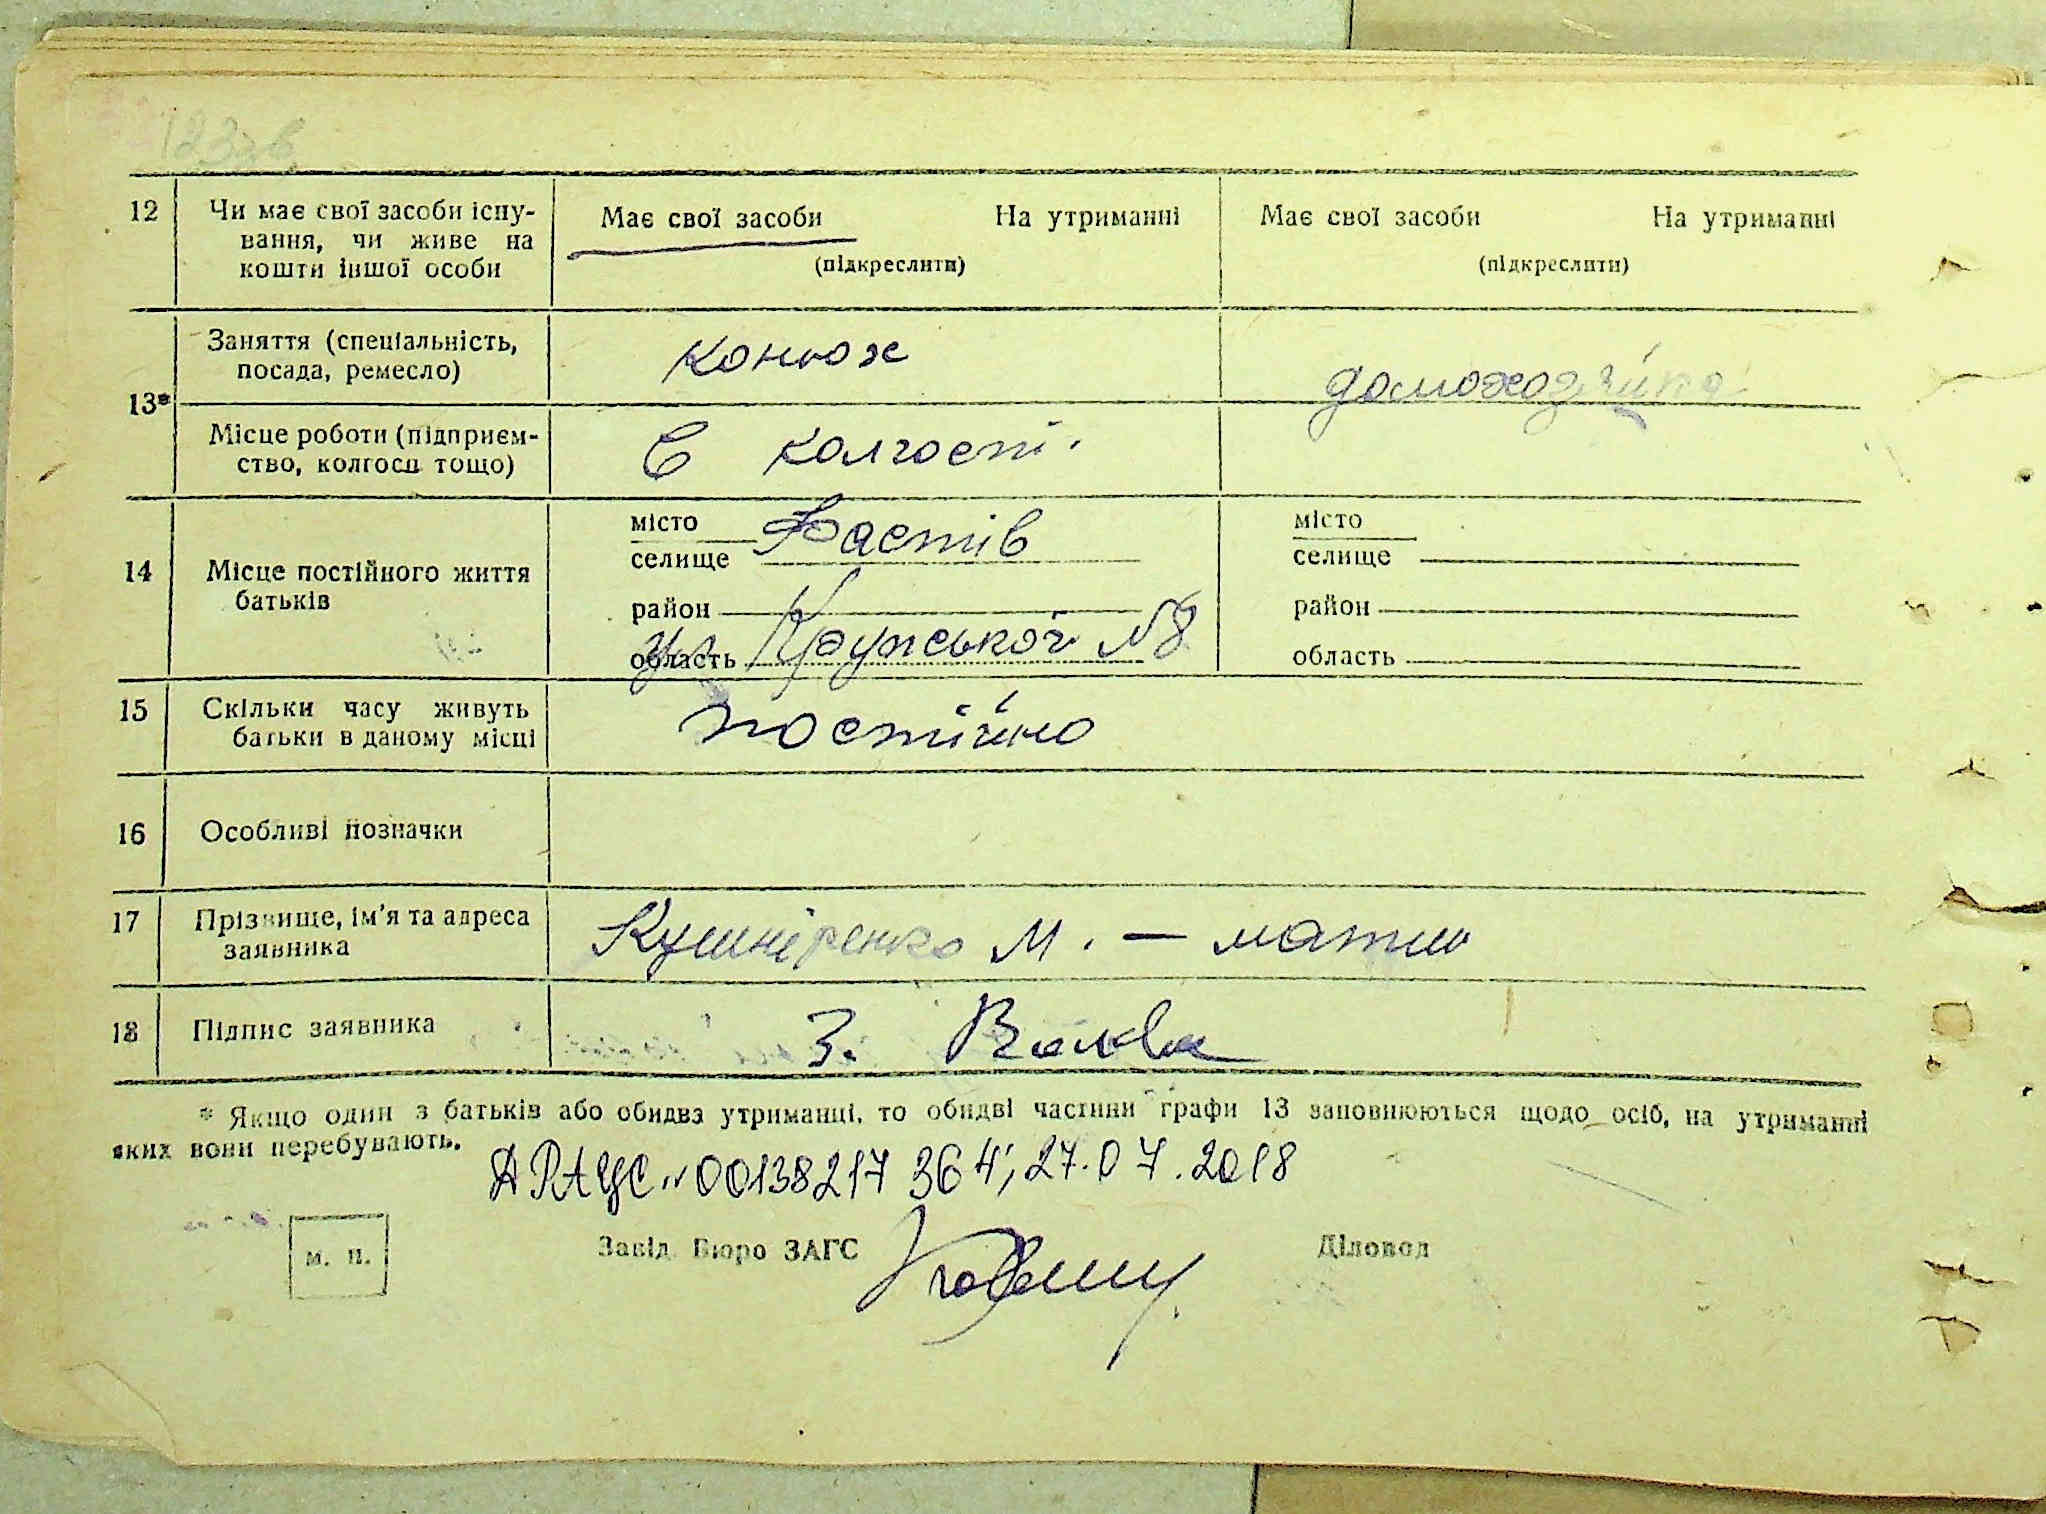 123зв
12 Чи має свої засоби існу- Має свої засоби На утриманні Має свої засоби На утриманні
вання, чи живе на (підкреслити) (підкреслити)
кошти іншої особи
13* Заняття (спеціальність, конюх домохозяйка
посада, ремесло)
Місце роботи (підприєм- В колгоспі.
ство, колгосп тощо)
14 Місце постійного життя
батьків
місто Фастів місто
селище селище
район район
ул Крупської №8
область область
15 Скільки часу живуть постійно
батьки в даному місці
16 Особливі позначки
17 Прізвище, ім'я та адреса Кушніренко М. — мати
заявника
18 Підпис заявника З.
* Якщо один з батьків або обидва утриманці, то обидві частини графи 13 заповнюються щодо осіб, на утриманні
яких вони перебувають.
ДРАЦС № 00138217364; 27.07.2018
М. П. Завід. Бюро ЗАГС Діловод